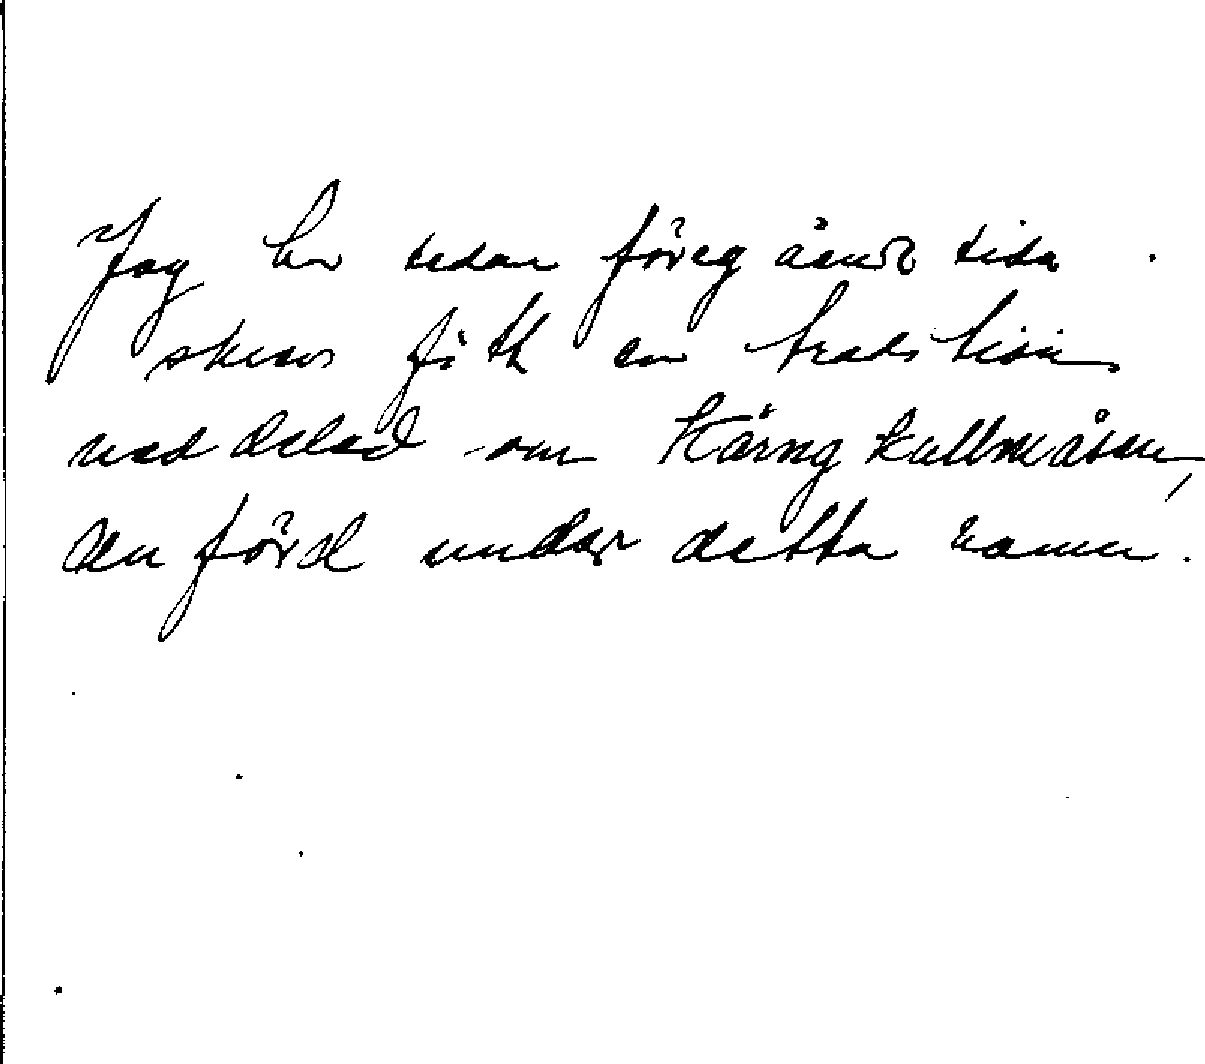 Jag har sedan föregående sida
skrevs fått en tradition
meddelad om Kärngkullmåsen,
anförd under detta namn.